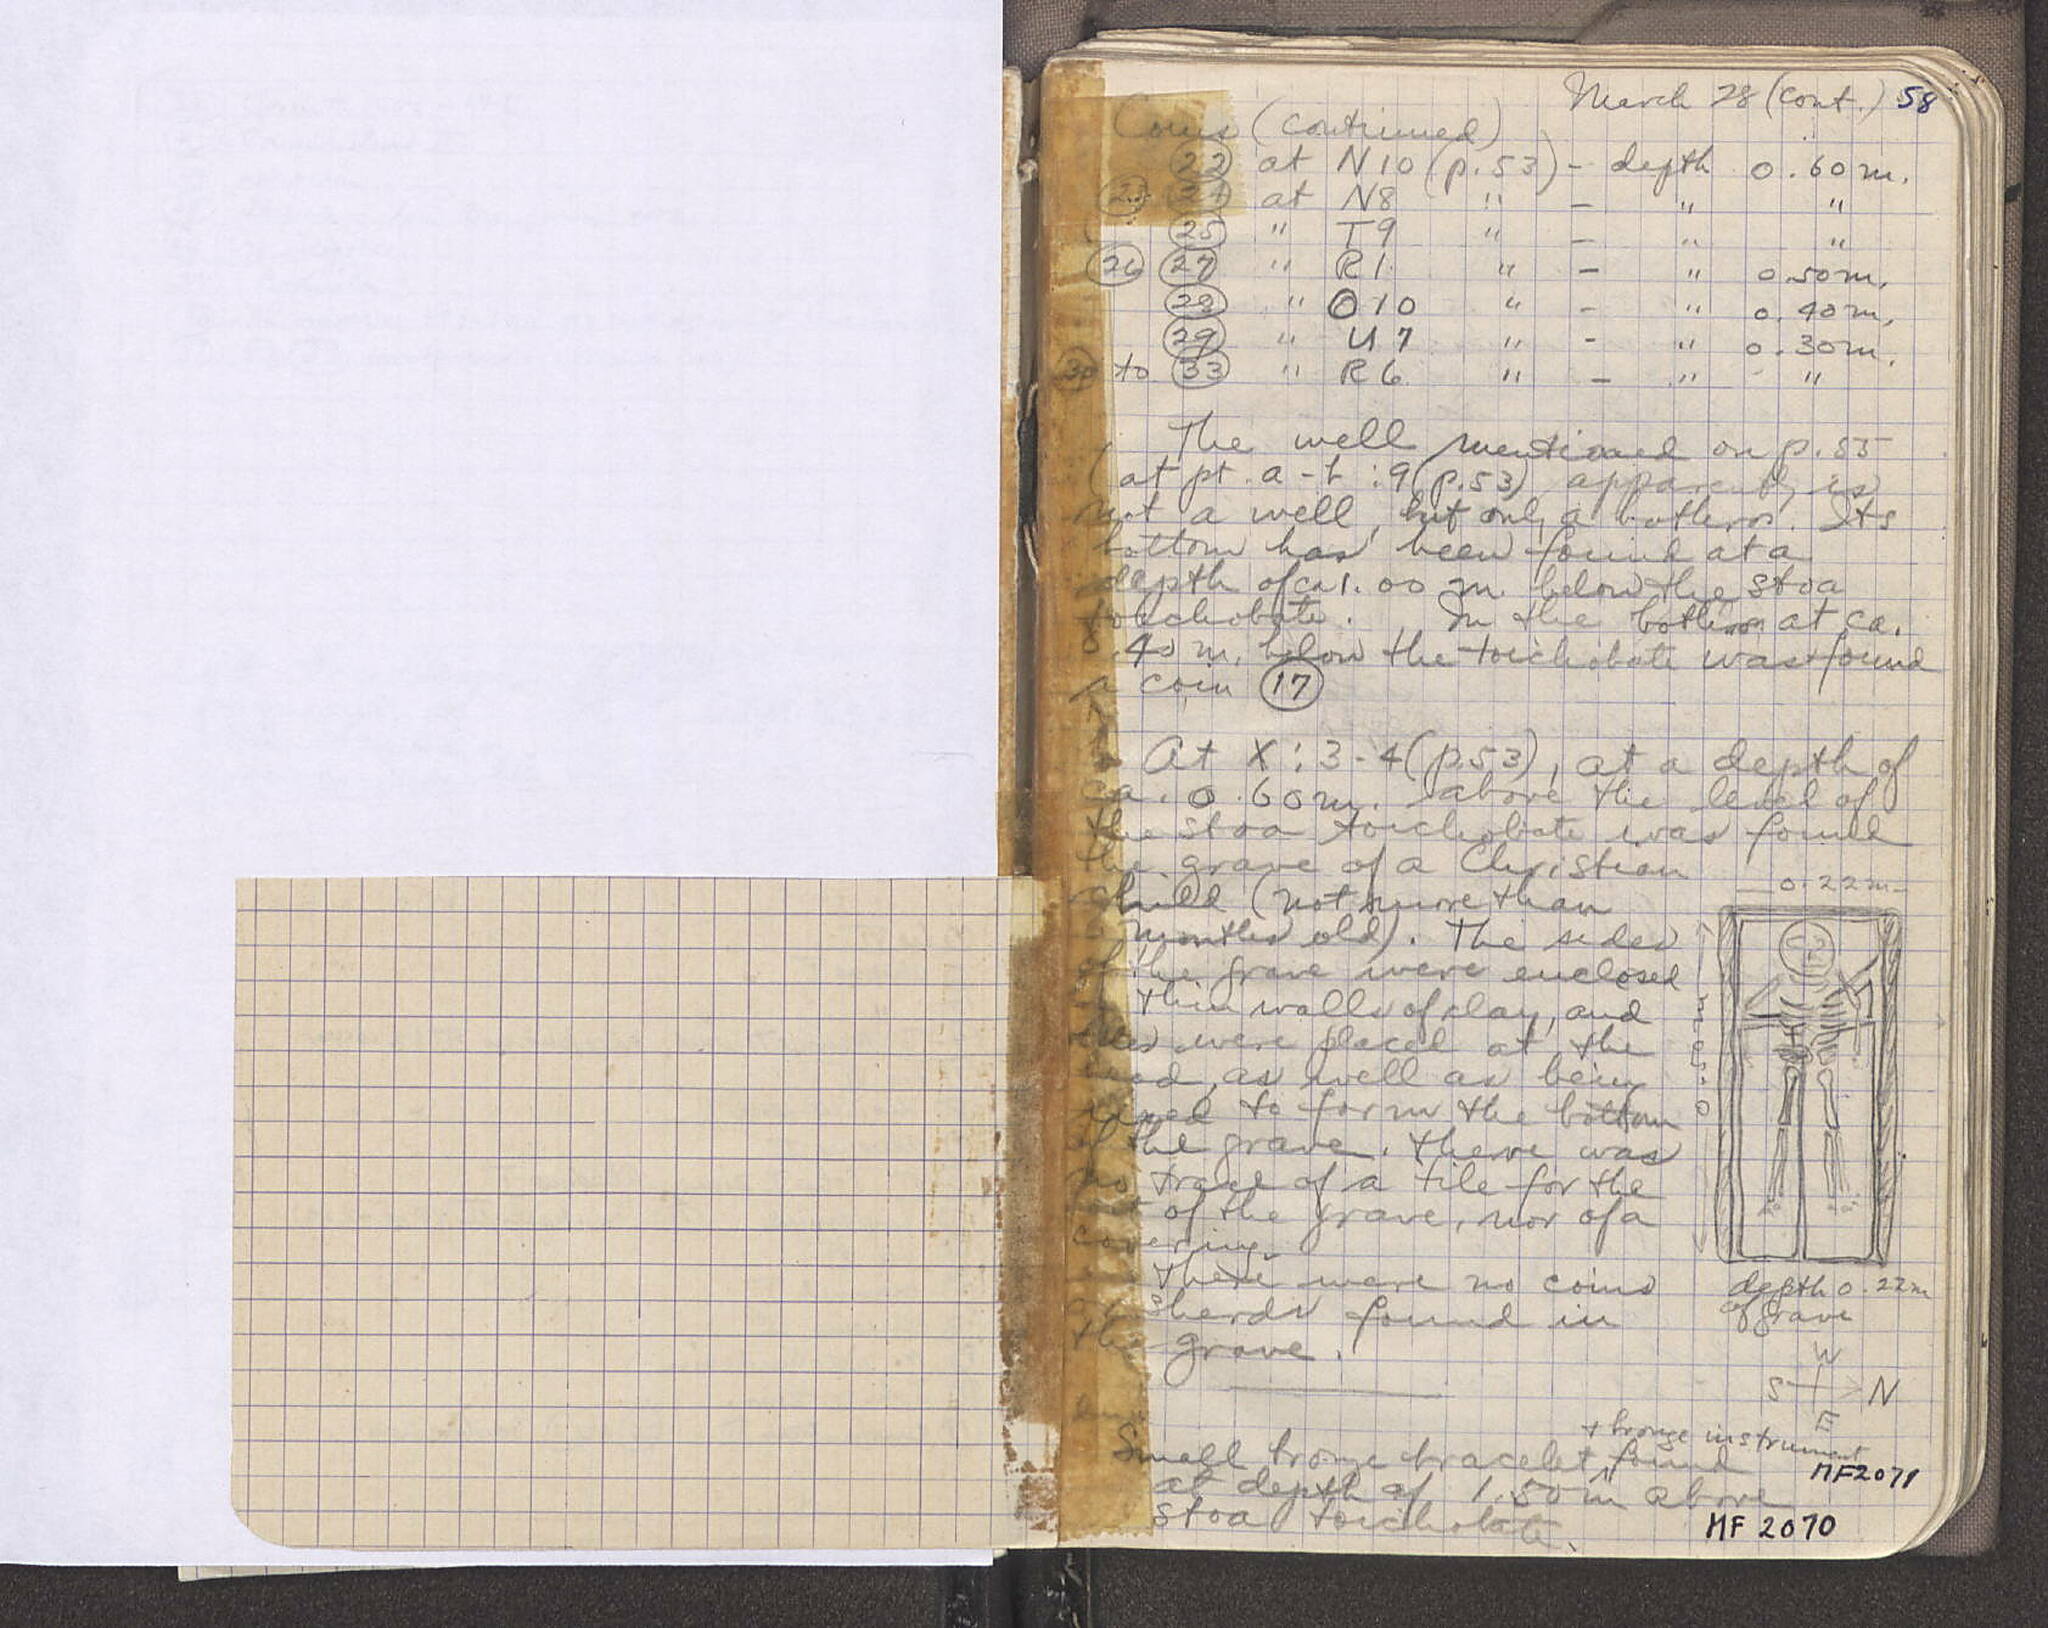 March 28 (cont.) 58
Coins (continued)
22 at N10 (p.53) - depth 0.60 m.
23 24 at N8 " - " "
25 " T9 " - " "
26 27 " R1 " - " 0.50 m.
28 " O10 " - " 0.40 m.
29 " U7 " - " 0.30 m.
30 to 33 " R6 " - " "
The well mentioned on p.55
(at pt. a-b :9 (p.53) apparently is
not a well, but only a bothros. Its
bottom has been found at a
depth of ca 1.00 m. below the stoa
toichobate. In the bothros at ca.
0.40 m. below the toichobate was found
a coin 17
At X:3-4 (p.53), at a depth of
ca. 0.60 m. above the level of
the stoa toichobate was found
the grave of a Christian
child (not more than
months old). The sides
of the grave were enclosed
thin walls of clay, and
tiles were placed at the
head, as well as being
used to form the bottom
of the grave. There was
no trace of a tile for the
foot of the grave, nor of a
covering.
There were no coins
or sherds found in
the grave.
0.22 m
depth 0.22 m
of grave
W
S N
E
+ bronze instrument
Small bronze bracelet found
MF2071
at depth of 1.50 m above
stoa toichobate.
MF 2070